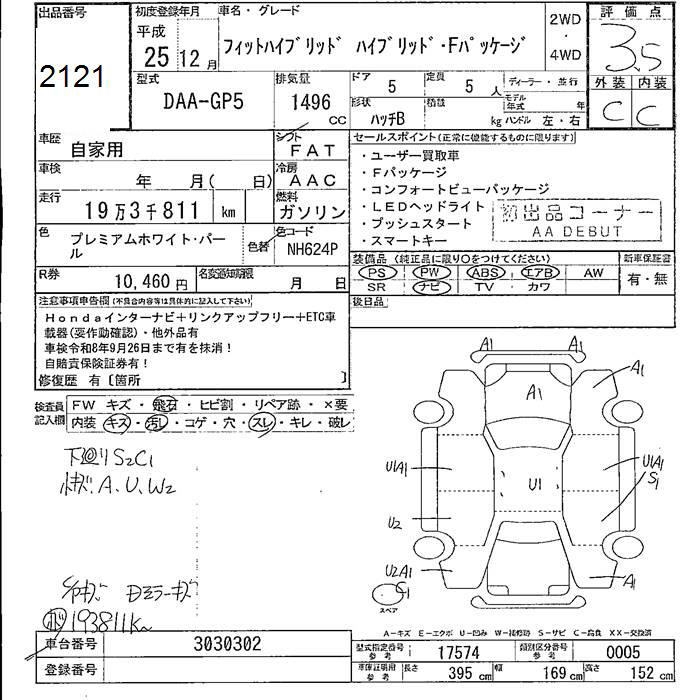 出品番号
2121
初度登録年月
平成
25 12 月
車名・グレード
フィットハイブリッド ハイブリッド・Fパッケージ
2WD
・
4WD
評価点
3.5
外装 内装
C C
型式
DAA-GP5
排気量
1496
CC
ドア
5
定員
5 人
ディーラー・並行
形状
ハッチB
積載
kg
モデル年式
年
ハンドル 左・右
車歴
自家用
シフト
FAT
車検
年 月( 日)
冷房
AAC
走行
19万3千811 km
燃料
ガソリン
色
プレミアムホワイト・パール
色替
色コード
NH624P
R券
10,460 円
名変期限
月 日
セールスポイント(正常に機能するものに限ります)
・ユーザー買取車
・Fパッケージ
・コンフォートビューパッケージ
・LEDヘッドライト
・プッシュスタート
・スマートキー
初出品コーナー
AA DEBUT
装備品(純正品に限り○をつけてください)
PS PW ABS エアB AW
SR ナビ TV カワ
新車保証書
有・無
後日品
注意事項申告欄(不具合内容等は具体的に記入して下さい)
Hondaインターナビ+リンクアップフリー+ETC車
載器(要作動確認)・他外品有
車検令和8年9月26日まで有を抹消!
自賠責保険証券有!
修復歴 有〔箇所 〕
検査員
記入欄
FW キズ・飛石・ヒビ割・リペア跡・×要
内装 キズ・汚レ・コゲ・穴・スレ・キレ・破レ
下回りS2C1
小キズ.A.U.W2
シートキズ Dミラーキズ
193811Km
A1 A1
A1
A1
U1A1
U1A1
S1
U1
U2
U2A1
C1
A1
スペア
A-キズ E-エクボ U-凹み W-補修跡 S-サビ C-腐食 XX-交換済
車台番号
3030302
登録番号
型式指定番号
参考
17574
類別区分番号
参考
0005
車庫証明用
参考
長さ
395 cm
幅
169 cm
高さ
152 cm